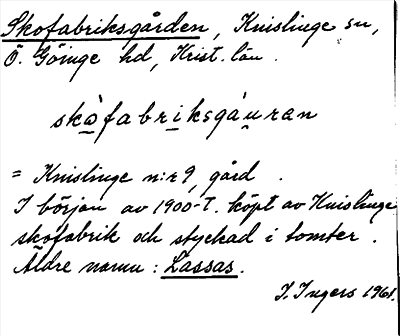 Skofabriksgården, Knislinge sn,
Ö. Göinge hd, Krist. län.
skòfabriksgáuran
= Knislinge n:r 9, gård.
I början av 1900-t. köpt av Knislinge
skofabrik och styckad i tomter.
Äldre namn: Lassas.
I. Ingers 1961.